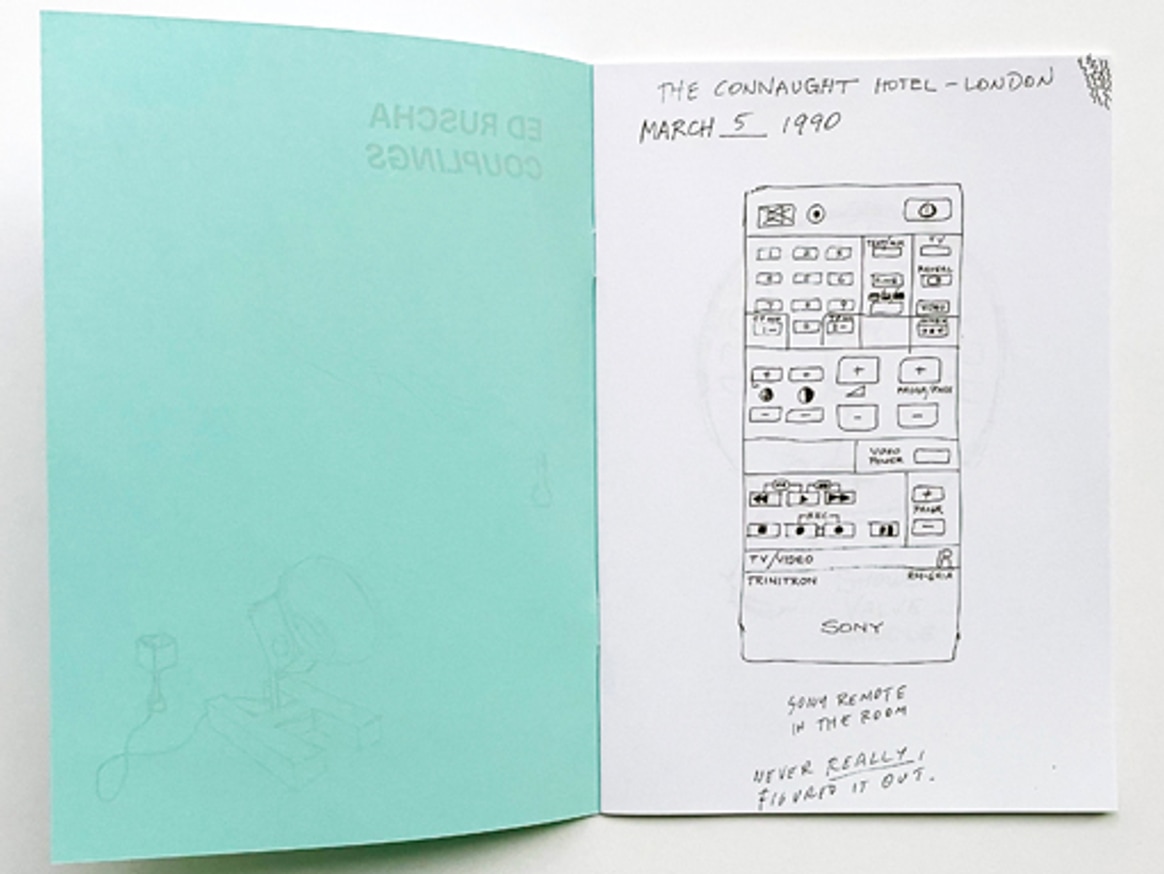 ED RUSCHA
COUPLINGS
THE CONNAUGHT HOTEL - LONDON
MARCH 5 1990
TV
REVEAL
VIDEO
VIDEO
POWER
REC
PROGR
TV/VIDEO
TRINITRON
SONY
SONY REMOTE
IN THE ROOM
NEVER REALLY
FIGURED IT OUT.